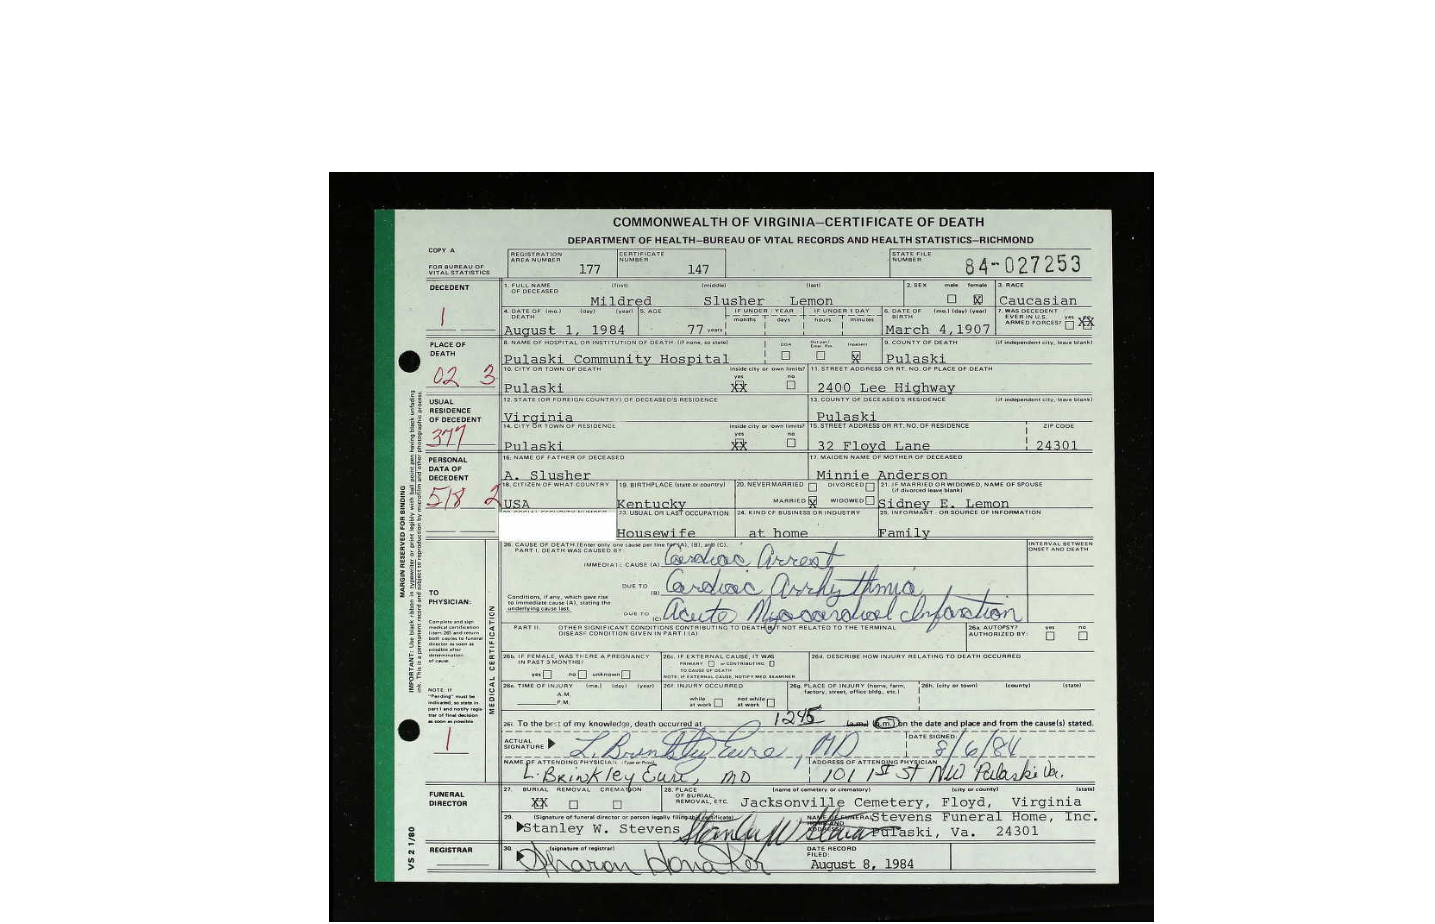 COMMONWEALTH OF VIRGINIA—CERTIFICATE OF DEATH
DEPARTMENT OF HEALTH—BUREAU OF VITAL RECORDS AND HEALTH STATISTICS—RICHMOND
COPY A
FOR BUREAU OF VITAL STATISTICS
REGISTRATION AREA NUMBER 177
CERTIFICATE NUMBER 147
STATE FILE NUMBER 84-027253
DECEDENT
1
1. FULL NAME OF DECEASED (first) (middle) (last)
Mildred Slusher Lemon
2. SEX male female X
3. RACE
Caucasian
4. DATE OF DEATH (mo.) (day) (year)
August 1, 1984
5. AGE
77 years
IF UNDER 1 YEAR months days
IF UNDER 1 DAY hours minutes
6. DATE OF BIRTH (mo.) (day) (year)
March 4,1907
7. WAS DECEDENT EVER IN U.S. ARMED FORCES? yes XX
PLACE OF DEATH
02 3
8. NAME OF HOSPITAL OR INSTITUTION OF DEATH (if none, so state)
Pulaski Community Hospital
DOA Inpatient X
9. COUNTY OF DEATH (if independent city, leave blank)
Pulaski
10. CITY OR TOWN OF DEATH inside city or town limits? yes no
Pulaski XX
11. STREET ADDRESS OR RT. NO. OF PLACE OF DEATH
2400 Lee Highway
USUAL RESIDENCE OF DECEDENT
377
12. STATE (OR FOREIGN COUNTRY) OF DECEASED'S RESIDENCE
Virginia
13. COUNTY OF DECEASED'S RESIDENCE (if independent city, leave blank)
Pulaski
14. CITY OR TOWN OF RESIDENCE inside city or town limits? yes no
Pulaski XX
15. STREET ADDRESS OR RT. NO. OF RESIDENCE ZIP CODE
32 Floyd Lane 24301
PERSONAL DATA OF DECEDENT
518 2
16. NAME OF FATHER OF DECEASED
A. Slusher
17. MAIDEN NAME OF MOTHER OF DECEASED
Minnie Anderson
18. CITIZEN OF WHAT COUNTRY
USA
19. BIRTHPLACE (state or country)
Kentucky
20. NEVER MARRIED DIVORCED
MARRIED X WIDOWED
21. IF MARRIED OR WIDOWED, NAME OF SPOUSE (if divorced leave blank)
Sidney E. Lemon
23. USUAL OR LAST OCCUPATION
Housewife
24. KIND OF BUSINESS OR INDUSTRY
at home
25. INFORMANT - OR SOURCE OF INFORMATION
Family
MARGIN RESERVED FOR BINDING
IMPORTANT: Use black ribbon in typewriter or print legibly with ball point pen having black unfading ink. This is a permanent record and subject to reproduction by microfilm and other photographic process.
TO PHYSICIAN:
Complete and sign medical certification (item 26) and return both copies to funeral director as soon as possible after determination of cause.
NOTE: If "Pending" must be indicated, so state in part I and notify registrar of final decision as soon as possible
1
MEDICAL CERTIFICATION
26. CAUSE OF DEATH (Enter only one cause per line for (A), (B), and (C).
INTERVAL BETWEEN ONSET AND DEATH
PART I. DEATH WAS CAUSED BY:
IMMEDIATE CAUSE (A) Cardiac Arrest
DUE TO (B) Cardiac Arrhythmia
Conditions, if any, which gave rise to immediate cause (A), stating the underlying cause last.
DUE TO (C) Acute Myocardial Infarction
PART II. OTHER SIGNIFICANT CONDITIONS CONTRIBUTING TO DEATH BUT NOT RELATED TO THE TERMINAL DISEASE CONDITION GIVEN IN PART I (A)
26a. AUTOPSY? AUTHORIZED BY: yes no
26b. IF FEMALE, WAS THERE A PREGNANCY IN PAST 3 MONTHS?
yes no unknown
26c. IF EXTERNAL CAUSE, IT WAS
PRIMARY or CONTRIBUTING
TO CAUSE OF DEATH
NOTE: IF EXTERNAL CAUSE, NOTIFY MED. EXAMINER
26d. DESCRIBE HOW INJURY RELATING TO DEATH OCCURRED
26e. TIME OF INJURY (mo.) (day) (year)
A.M.
P.M.
26f. INJURY OCCURRED
while at work not while at work
26g. PLACE OF INJURY (home, farm, factory, street, office bldg., etc.)
26h. (city or town) (county) (state)
26i. To the best of my knowledge, death occurred at 1245 (a.m.) (p.m.) on the date and place and from the cause(s) stated.
ACTUAL SIGNATURE L. Brinkley Eure, MD
DATE SIGNED
8/6/84
NAME OF ATTENDING PHYSICIAN (Type or Print)
L. Brinkley Eure, MD
ADDRESS OF ATTENDING PHYSICIAN
101 1st St NW Pulaski Va.
FUNERAL DIRECTOR
27. BURIAL REMOVAL CREMATION
XX
28. PLACE OF BURIAL, REMOVAL, ETC. (name of cemetery or crematory) (city or county) (state)
Jacksonville Cemetery, Floyd, Virginia
29. (Signature of funeral director or person legally filing this certificate)
Stanley W. Stevens Stanley W Stevens
NAME OF FUNERAL HOME AND ADDRESS
Stevens Funeral Home, Inc.
Pulaski, Va. 24301
REGISTRAR
30. (signature of registrar)
Sharon Honaker
DATE RECORD FILED:
August 8, 1984
VS 2 1/80